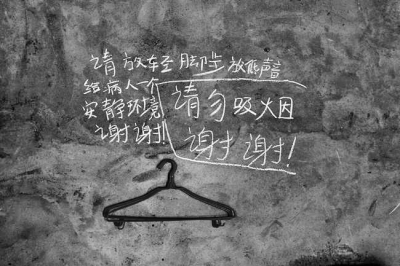 请放轻脚步放低声音
给病人一个
安静环境
谢谢!
请勿吸烟
谢谢!